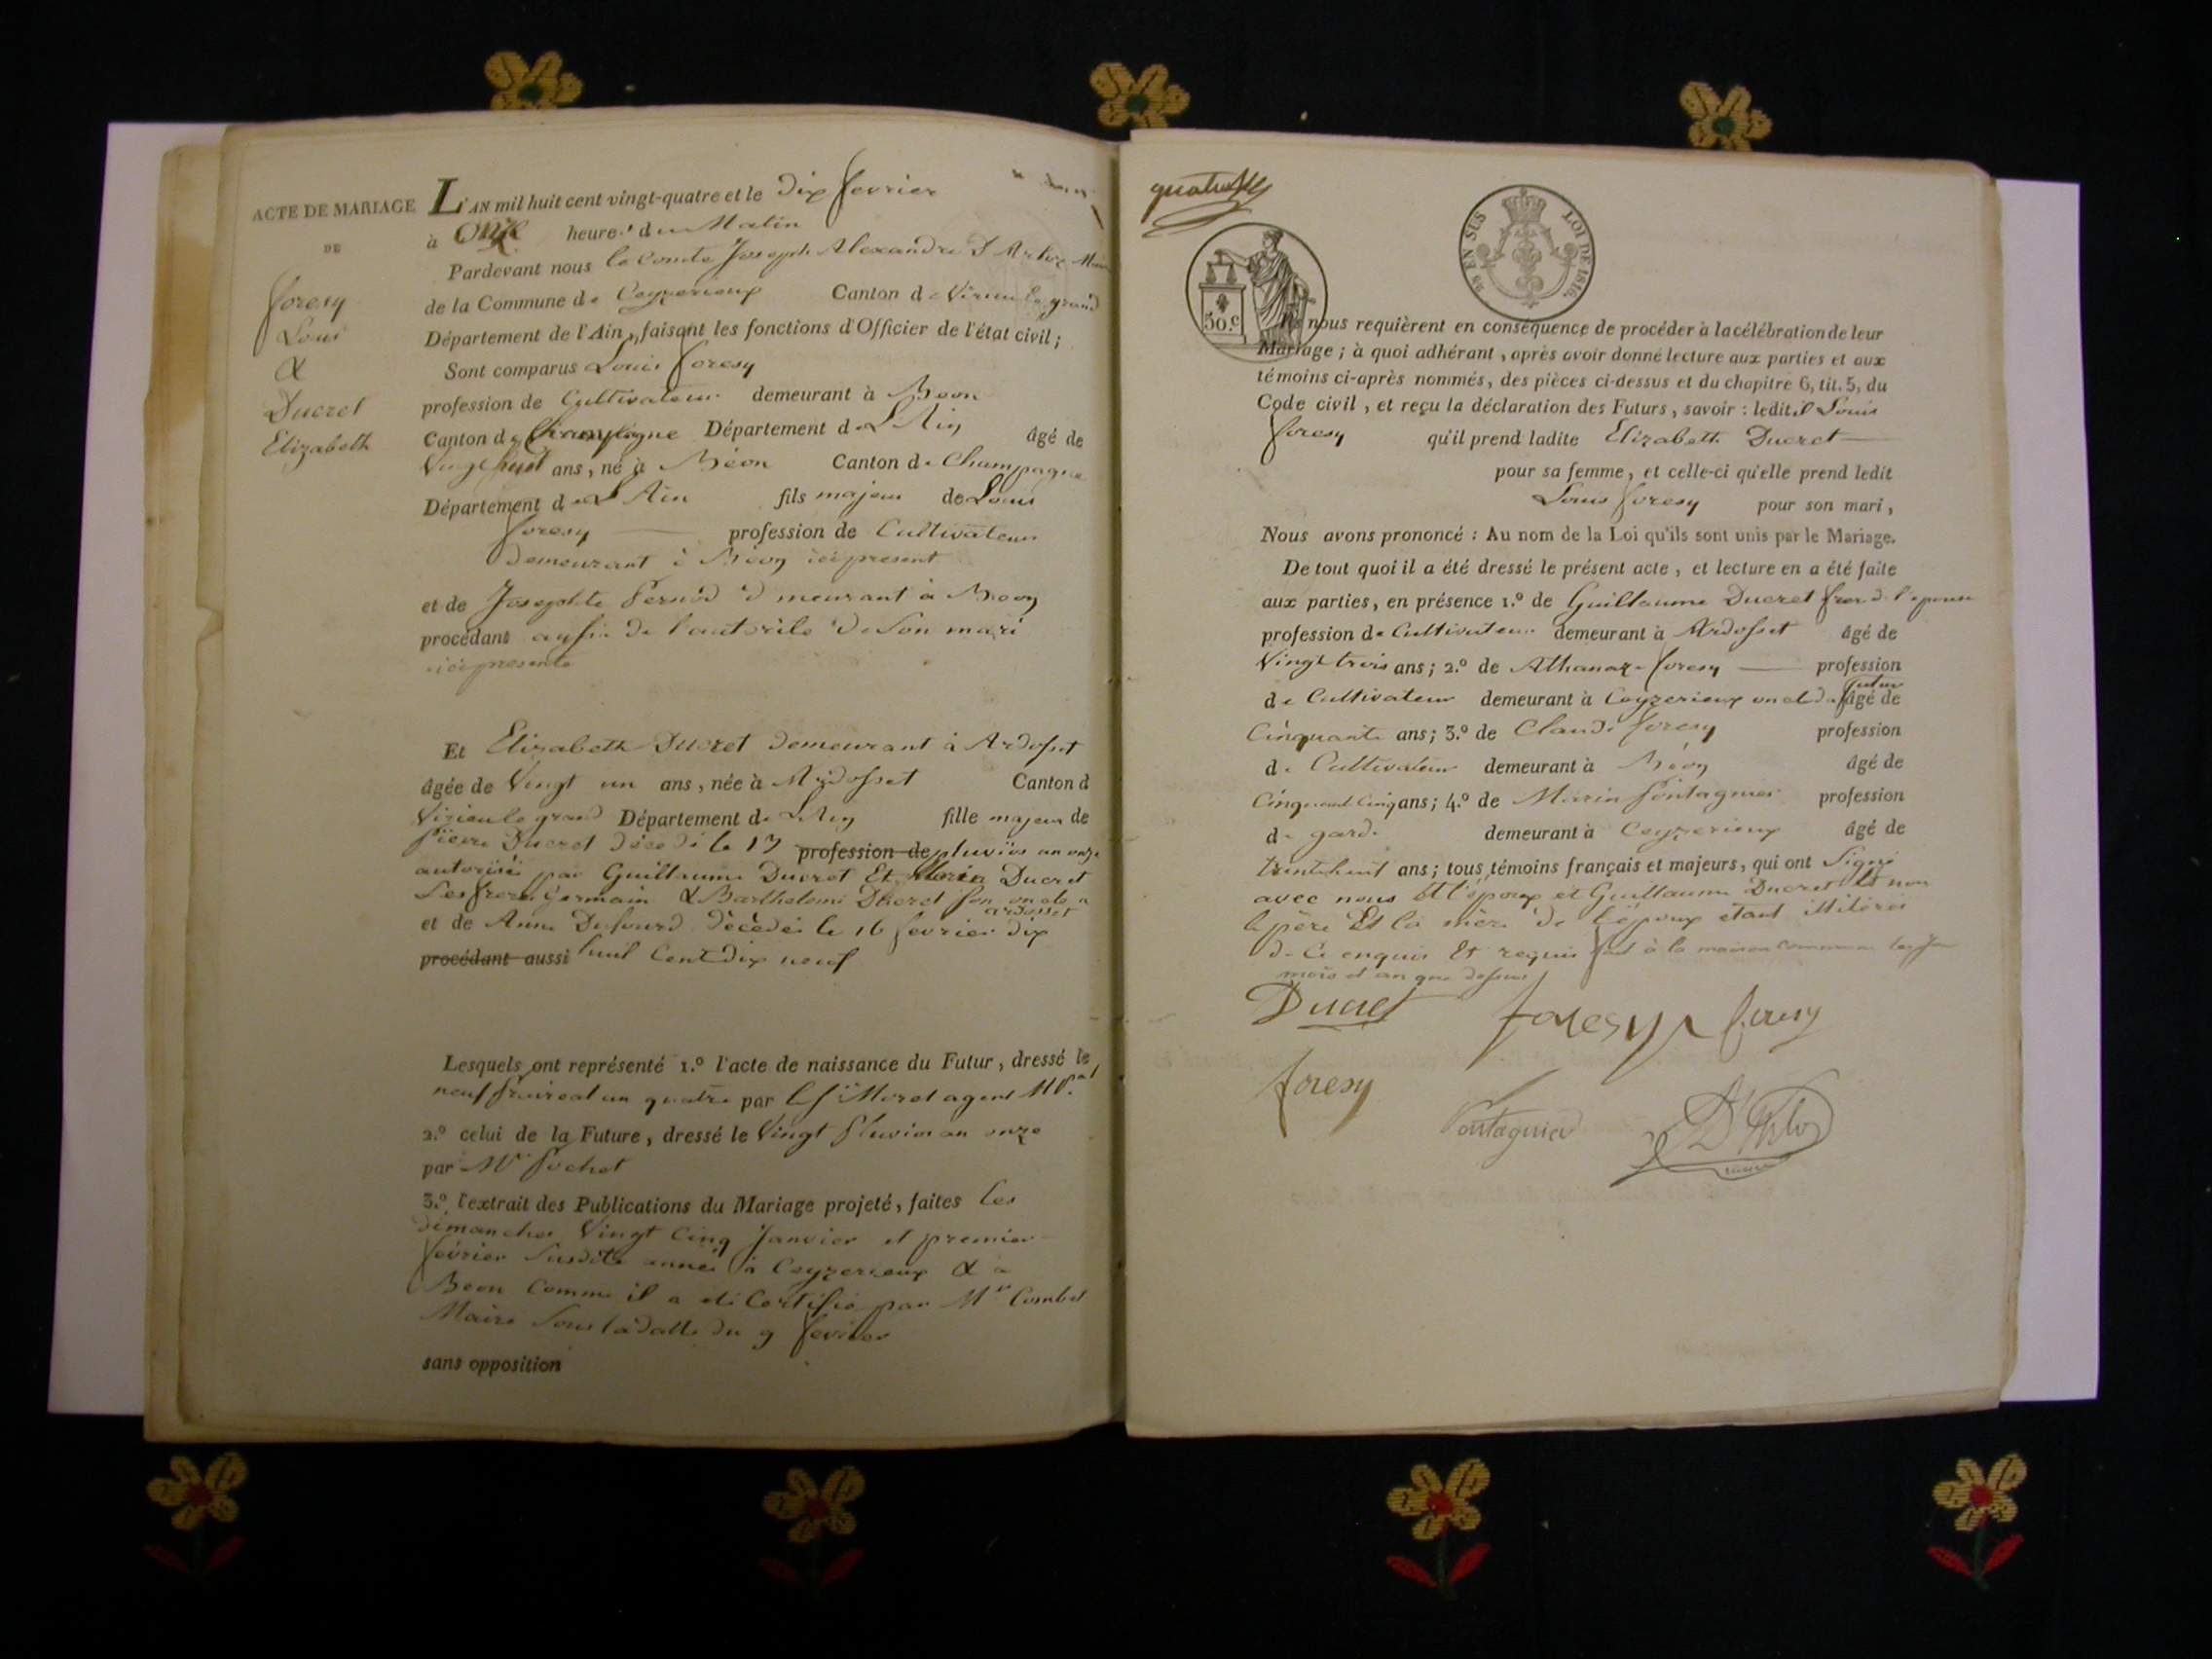 ACTE DE MARIAGE
DE
foresy
Louis
&
Ducret
Elizabeth
L'AN mil huit cent vingt-quatre et le Dix fevrier
à Onze heures du Matin
Pardevant nous le Comte Joseph Alexandre D'Arloz Maire
de la Commune de Ceyzerieux Canton de Virieu le grand
Département de l'Ain, faisant les fonctions d'Officier de l'état civil;
Sont comparus Louis foresy
profession de Cultivateur demeurant à Béon
Canton de Champagne Département de L'Ain âgé de
Vingt huit ans, né à Béon Canton de Champagne
Département de L'Ain fils majeur de Louis
foresy profession de Cultivateur
Demeurant à Béon ici present
et de Josephte Pernod Demeurant à Béon
procédant aussi de l'autorité De Son mari
ici presente
Et Elizabeth Ducret Demeurant à Ardosset
âgée de Vingt un ans, née à Ardosset Canton d
Virieu le grand Département de L'Ain fille majeur de
Pierre Ducret Décédé le 13 profession de pluviose an onze
autorisée par Guillaume Ducret Et Ducret
Ses freres Germain & Barthelemi Ducret son oncle a
ardosset
et de Anne Dufourd Décédée le 16 fevrier dix
procédant aussi huit Cent dix neuf
Lesquels ont représenté 1.º l'acte de naissance du Futur, dressé le
neuf an quatre par le Sr Moret agent Mpal
2.º celui de la Future, dressé le Vingt Pluviose an onze
par Mr Pochet
3.º l'extrait des Publications du Mariage projeté, faites Les
dimanches Vingt Cinq Janvier et premier
fevrier Susdite année à Ceyzerieux & a
Beon Comme il a été Certifié par Mr Combet
Maire Sous la datte du 9 fevrier
sans opposition
LOI DE 1816.
EN SUS
50.c
Ils nous requièrent en conséquence de procéder à la célébration de leur
Mariage; à quoi adhérant, après avoir donné lecture aux parties et aux
témoins ci-après nommés, des pièces ci-dessus et du chapitre 6, tit. 5, du
Code civil, et reçu la déclaration des Futurs, savoir: ledit Louis
foresy qu'il prend ladite Elizabeth Ducret
pour sa femme, et celle-ci qu'elle prend ledit
Louis foresy pour son mari,
Nous avons prononcé: Au nom de la Loi qu'ils sont unis par le Mariage.
De tout quoi il a été dressé le présent acte, et lecture en a été faite
aux parties, en présence 1.º de Guillaume Ducret frere de l'epouse
profession de Cultivateur demeurant à Ardosset âgé de
Vingt trois ans; 2.º de Athanaze foresy profession
de Cultivateur demeurant à Ceyzerieux oncle du futur âgé de
Cinquante ans; 3.º de Claude foresy profession
de Cultivateur demeurant à Béon âgé de
Cinquante Cinq ans; 4.º de Marin fontagnier profession
de garde demeurant à Ceyzerieux âgé de
trente huit ans; tous témoins français et majeurs, qui ont Signé
avec nous Et l'époux et Guillaume Ducret Et non
le père Et la mère De l'époux étant illiteré
De Ce enquis Et requis fait à la maison commune les Jour
mois et an que dessus
Ducret
foresy
foresy
foresy
fontagnier
D'Arloz
maire